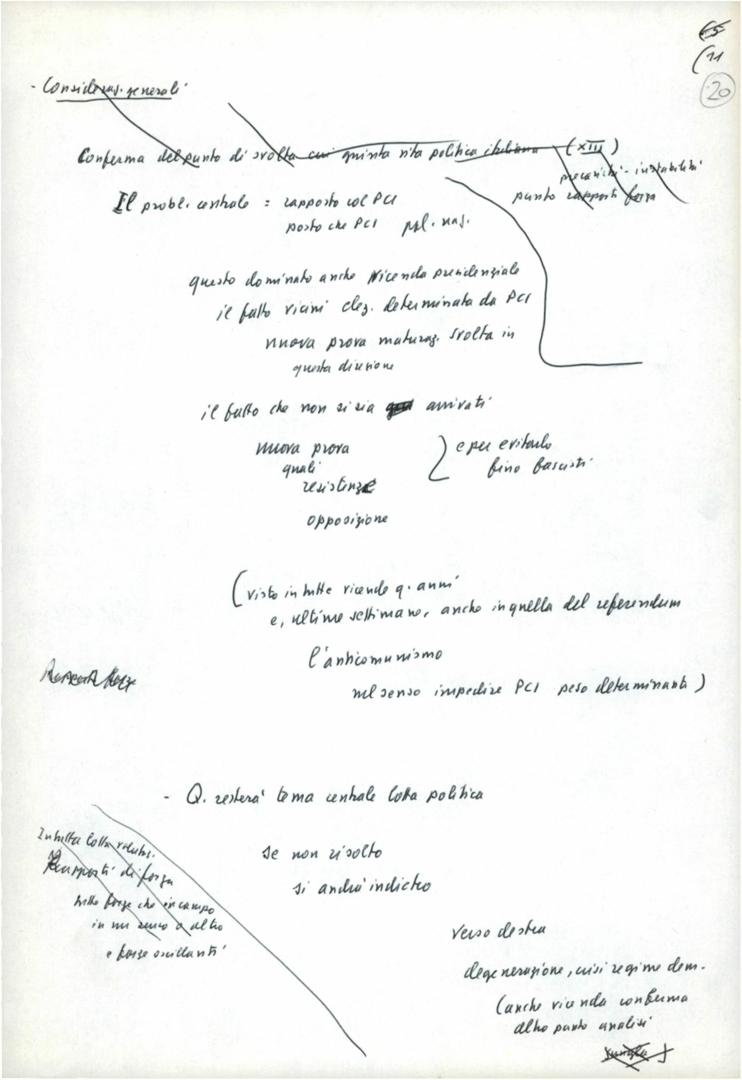 (11
20
- Consideraz. generali
Conferma del punto di svolta cui giunta vita politica italiana (XIII)
precarietà - instabilità
punto rapporti forza
Il probl. centrale = rapporto col PCI
posto che PCI
questo dominato anche vicenda presidenziale
il fatto vicini elez. determinata da PCI
nuova prova maturaz. svolta in
questa direzione
il fatto che non si sia arrivati
nuova prova
quali
resistenze
opposizione
e per evitarlo
fino fascisti
(visto in tutte vicende q. anni
e, ultime settimane, anche in quella del referendum
l'anticomunismo
nel senso impedire PCI peso determinante)
Rapporti forze
- Q. resterà tema centrale lotta politica
In tutta lotta
Rapporti di forza
tutte forze che in campo
in un senso o altro
e forze oscillanti
se non risolto
si andrà indietro
verso destra
degenerazione, crisi regime dem.
(anche vicenda conferma
altro punto analisi